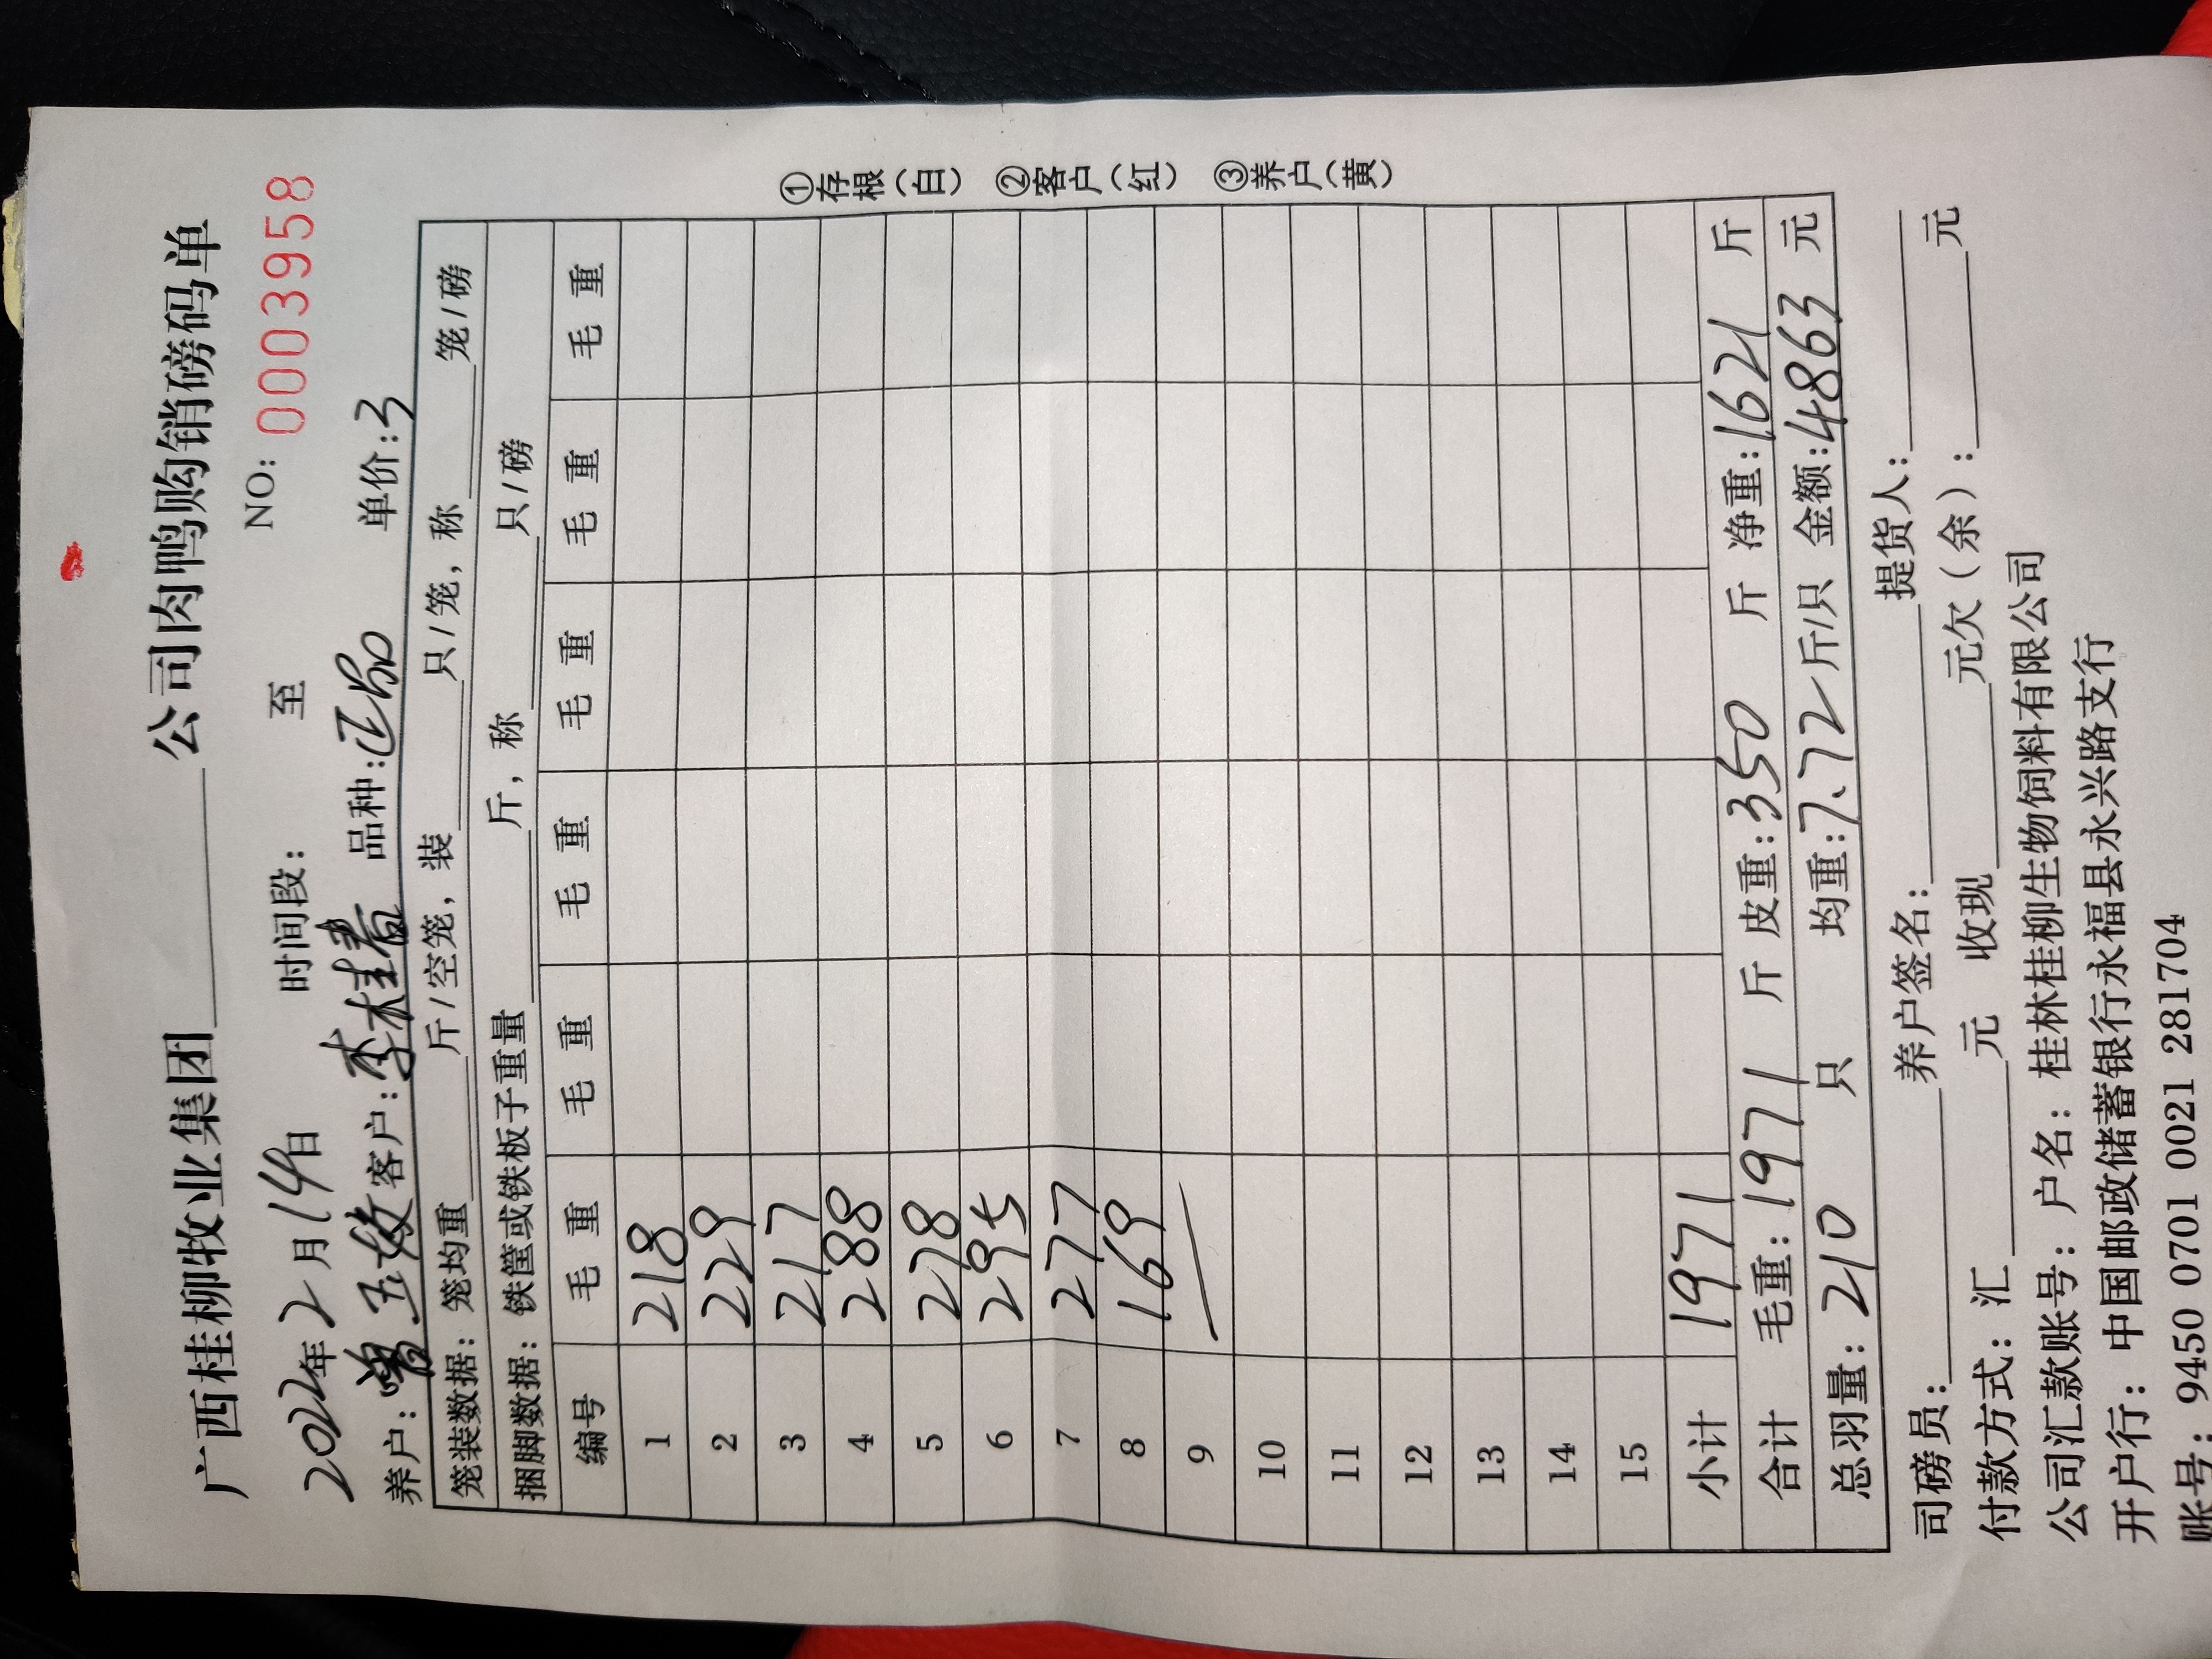 广西桂柳牧业集团______公司肉鸭购销磅码单
2022年2月14日 时间段: 至 NO: 0003958
养户: 曾五 客户: 李桂春 品种: 正品 单价: 3
笼装数据: 笼均重____斤/空笼, 装____只/笼, 称____笼/磅
捆脚数据: 铁筐或铁板子重量____斤, 称____只/磅
编号 毛重 毛重 毛重 毛重 毛重 毛重
1 218
2 229
3 217
4 288
5 278
6 295
7 277
8 169
9
10
11
12
13
14
15
小计 1971
合计 毛重: 1971 斤 皮重: 350 斤 净重: 1621 斤
总羽量: 210 只 均重: 7.72 斤/只 金额: 4863 元
①存根(白) ②客户(红) ③养户(黄)
司磅员:____养户签名:____提货人:____
付款方式: 汇____元 收现____元欠(余):____元
公司汇款账号: 户名: 桂林桂柳生物饲料有限公司
开户行: 中国邮政储蓄银行永福县永兴路支行
账号: 9450 0701 0021 281704